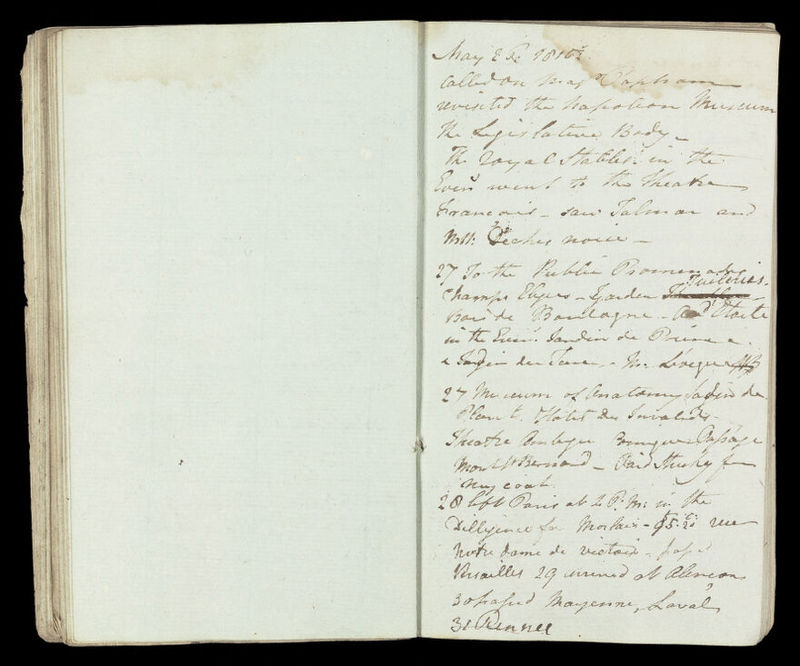 May 26. 1810
Called on Mag Clapham
revisited the Napoleon Museum
the Legislative Body -
The royal Stables. in the
Even went to the Theatre
Francois - saw Talmar and
Mlle:
27 To the Public Promenade
Tuileries.
Champs Elyees - Garden
Bois de Boulogne - and
in the Even. Jardin de Prince.
& Jardin de - Mr.
27 Museum of Anatomy Jadin de
Plant. Hotel des Invalids -
Theatre Passage
Mont St Bernard - Paid for
my coat.
28 left Paris at 2 P.M. in the
Dilligence for Morlaix - rue
Notre dame de victoir - pasd
Versailles 29 arrived at Alencon
30 pased Mayenne, Laval,
31 Rennes